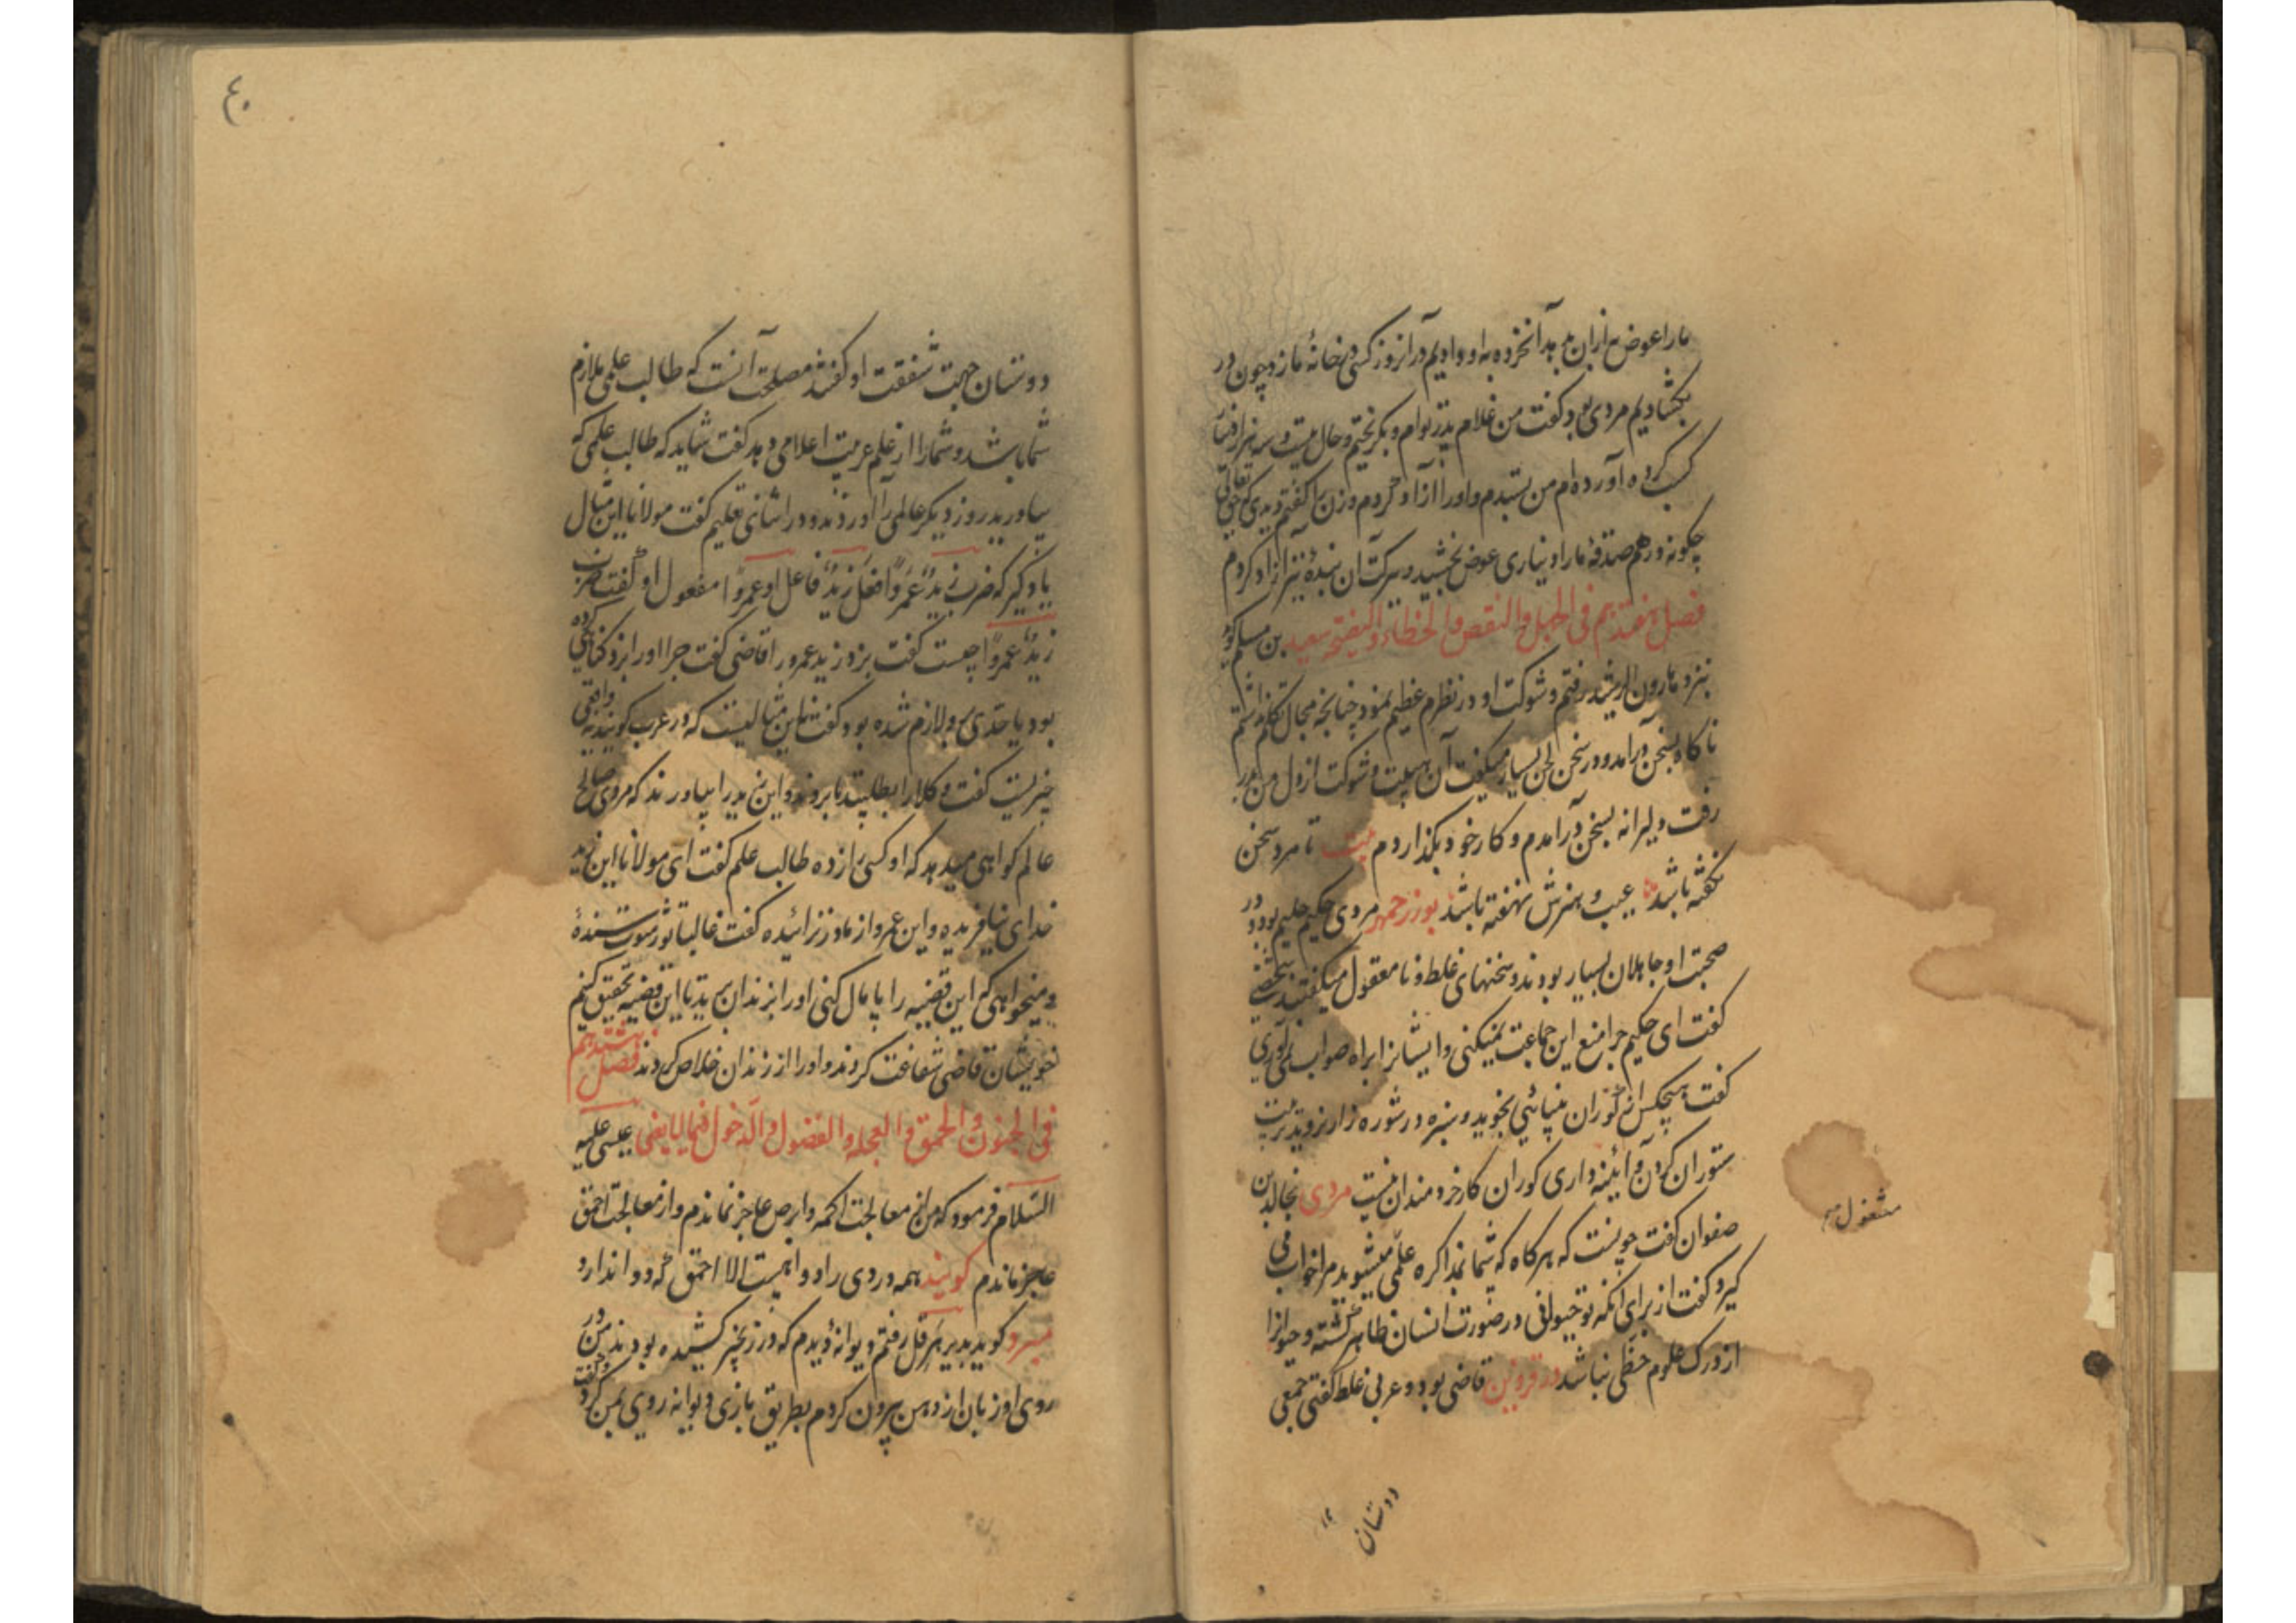 ما را عوض به از ان بدهد آنخرده به او دادیم در آنروز کسی در خانهٔ ما زد چون در
بکشادیم مردی بود گفت من غلام پدر توام و بگریختم و حال بیست و سه هزار دینار
کسب کرده آورده‌ام من بستدم و او را آزاد کردم و زن را گفتم دیدی که حق تعالی
چگونه درهم صدقهٔ ما را دیناری عوض بخشید و ببرکت آن بندهٔ نیز آزاد کردم
فصل هفتدهم فی الجهل والنقص والخطاء و سعید بن مسلم گوید
بنزد هارون الرشید رفتم و شوکت او در نظرم عظیم نمود چنانچه مجال تکلم نداشتم
ناکاه بسخن درآمد و در سخن لحن بسیار میگفت آن هیبت و شوکت از دل من بدر
رفت و دلیرانه بسخن درآمدم و کار خود بگذاردم بیت تا مرد سخن
نگفته باشد عیب و هنرش نهفته باشد بوزرجمهر مردی حکیم حلیم بود و در
صحبت او جاهلان بسیار بودند و سخنهای غلط و نامعقول میگفتند شخصی
گفت ای حکیم چرا منع این جماعت نمیکنی و ایشانرا براه صواب نمی‌آوری
گفت هیچکس از کوران بینائی نجوید و سبزه در شوره زار نروید تربیت
ستوران کردن و آئینه داری کوران کار خردمندان نیست مردی بخالد بن
صفوان گفت چونست که هرکاه که شما بمذاکره علمی میشوید مرا خواب می
مشغول
گیرد گفت از برای آنکه تو حیوانی در صورت انسان ظاهر گشته و حیوانرا
از درک علوم حظی نباشد در قزوین قاضی بود و عربی غلط گفتی جمعی
دوستان
٤٠
دوستان جهت شفقت او گفتند مصلحت آنست که طالب علمی ملازم
شما باشد و شما را از علم عربیت اعلامی دهد گفت شاید که طالب علمی که
بیاورید روز دیگر عالمی را آوردند و در اثنای تعلیم گفت مولانا این مثال
یاد گیر که ضرب زیدٌ عمرواً فعل زیدٌ فاعل او عمرواً مفعول او گفت ضرب
زیدٌ عمرواً چیست گفت بزد زید عمرو را قاضی گفت چرا او را بزد گناهی کرده
بود یا حدی برو لازم شده بود گفت این مثالیست که در عرب گویند نه واقعی
چیزیست گفت وکلا را بطلبید تا بروند و این زید را بیاورند که مردی صالح
عالم گواهی میدهد که او کسی را زده طالب علم گفت ای مولانا این زید
خدای نیافریده و این عمرو از مادر نزائیده گفت غالبا تو رشوت ستندهٔ
و میخواهی که این قضیه را پامال کنی او را بزندان برید تا این قضیه تحقیق کنیم
خویشان قاضی شفاعت کردند و او را از زندان خلاص کردند فصل هشتدهم
فی الجنون والحمق و العجله والفضول والدخول فیما لایعنی عیسی علیه
السلام فرمود که من از معالجت اکمه و ابرص عاجز نماندم و از معالجت احمق
عاجز ماندم گویند همه دردی را دوا هست الا احمق که دوا ندارد
مبرد گوید بدیر هرقل رفتم دیوانهٔ دیدم که در زنجیر کشیده بودند من در
روی او زبان از دهن بیرون کردم بطریق بازی دیوانه روی بمن کرد و گفت